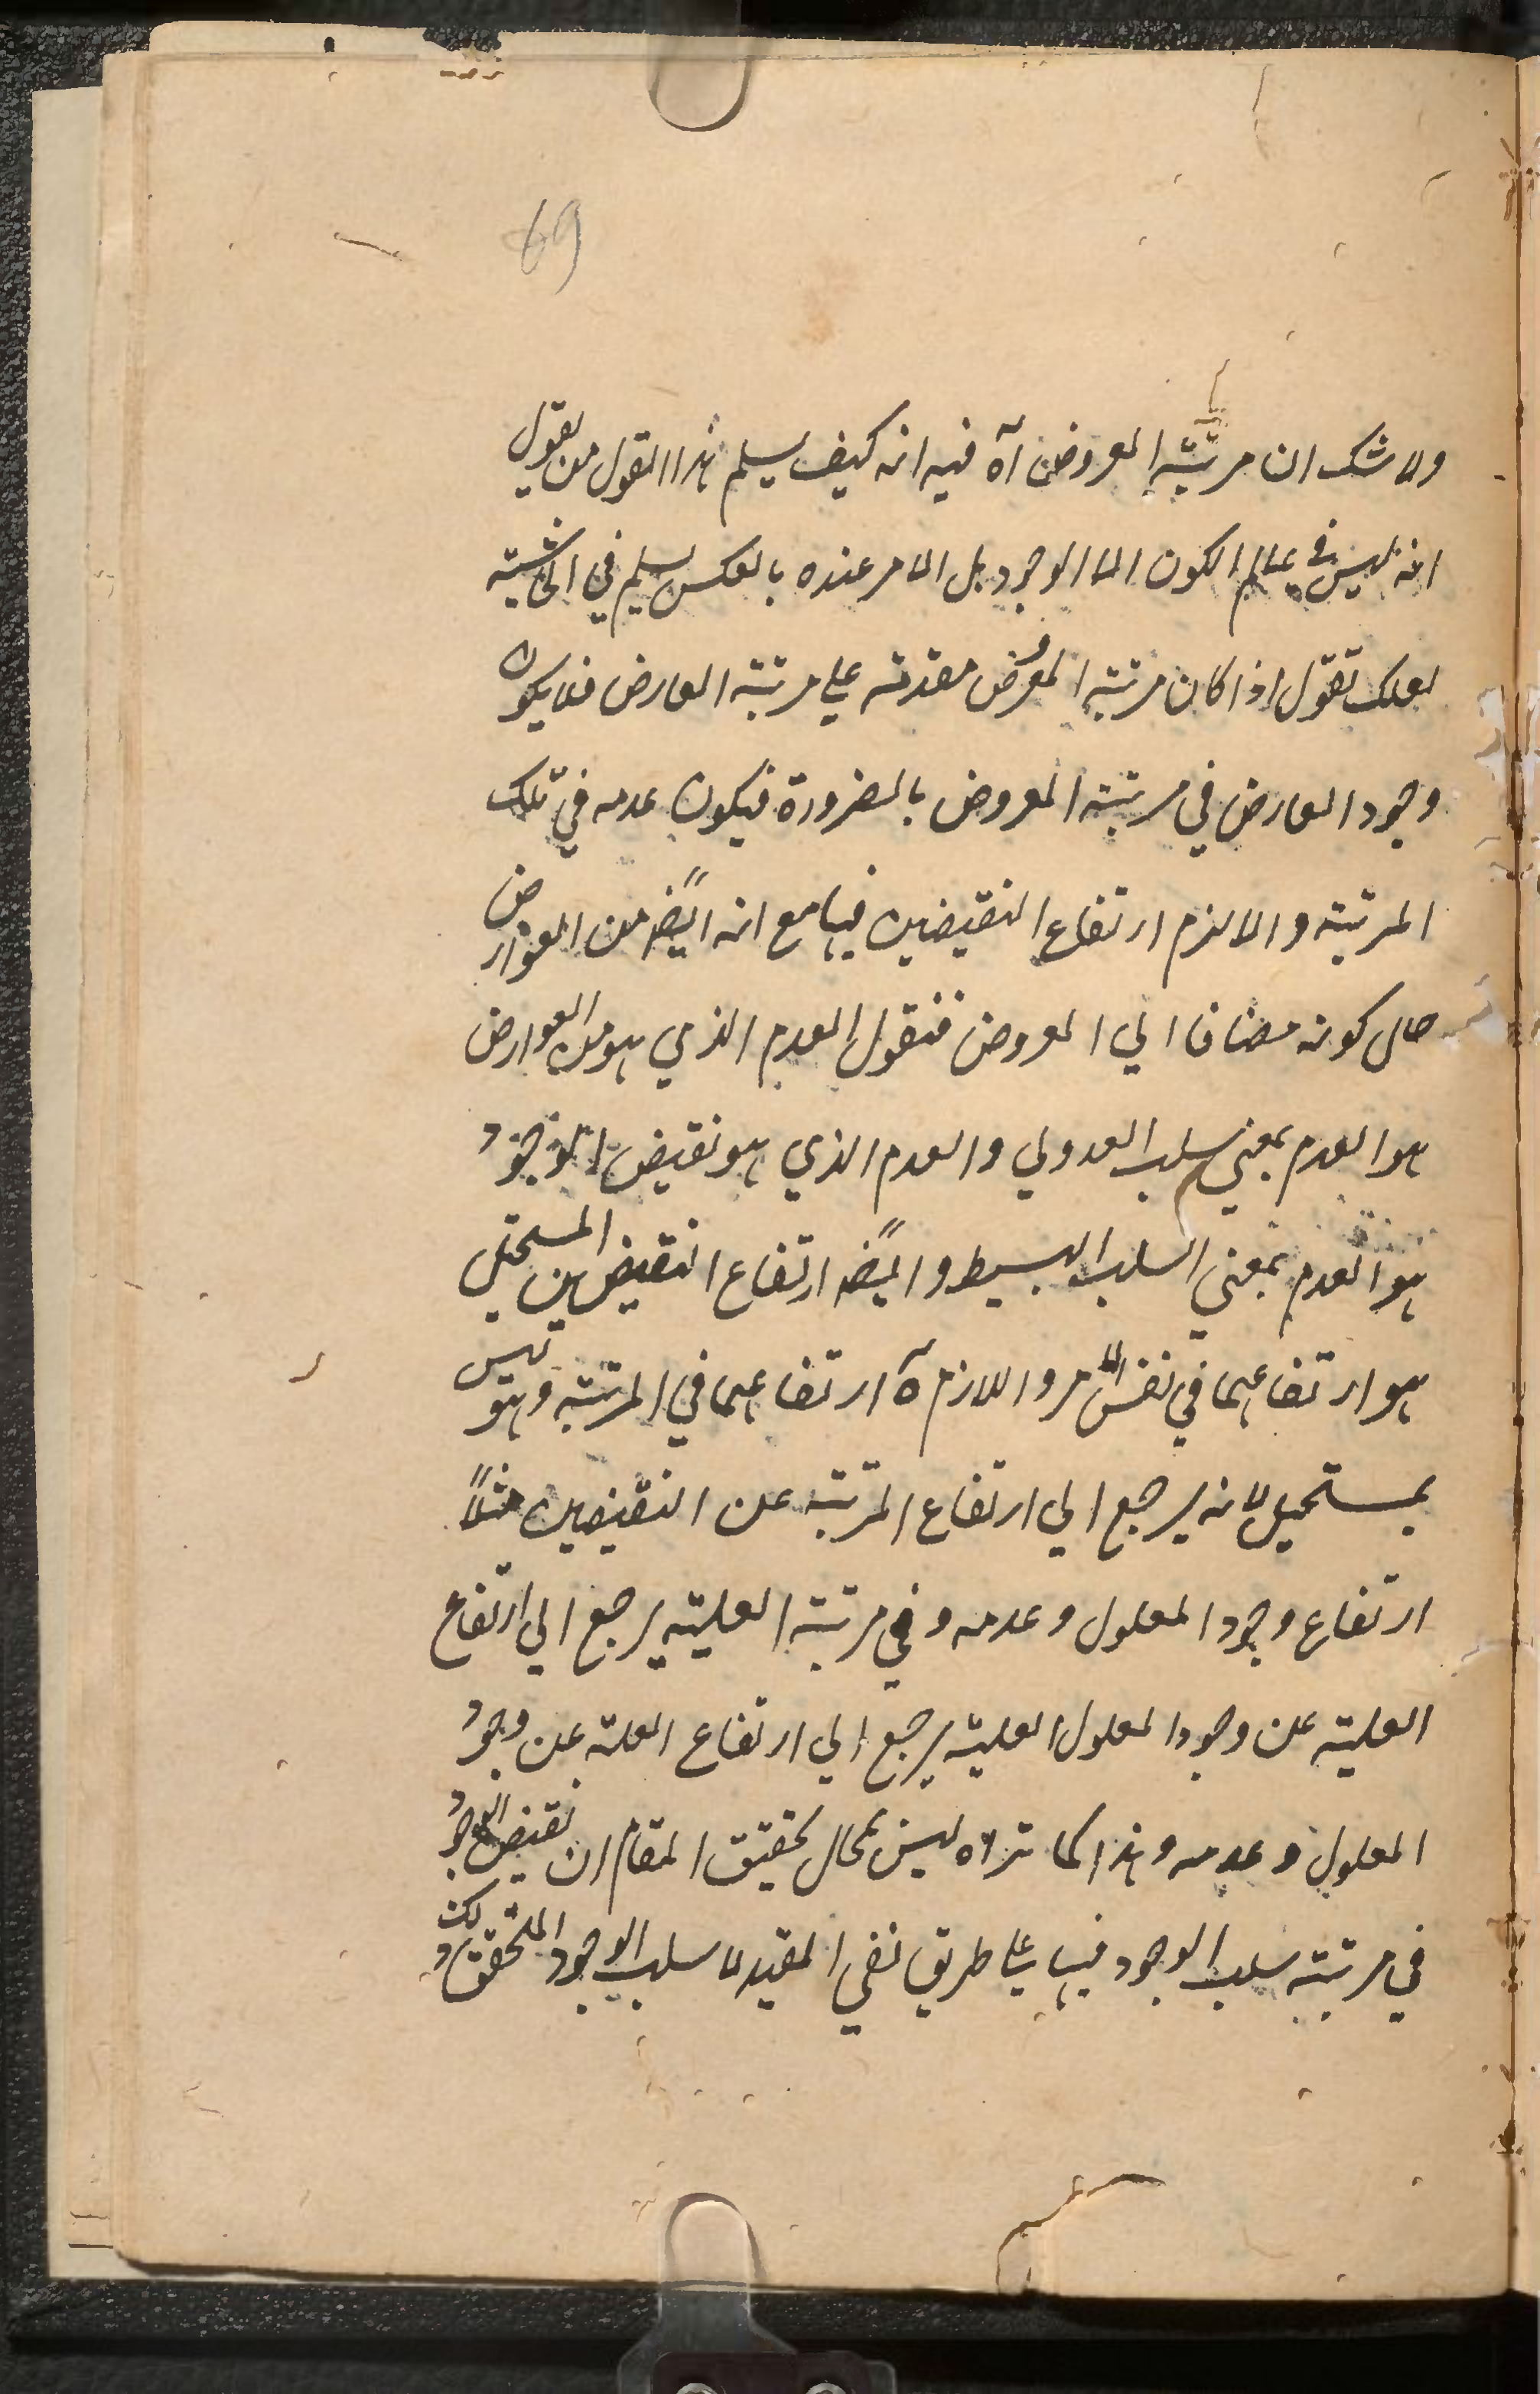 69
ولا شك ان مرتبة المعروض آه فيه انه كيف يسلم هذا القول من يقول
انه ليس في عالم الكون الا الوجود بل الامر عنده بالعكس يسلم في الحاشية
لعلك تقول اذا كان مرتبة المعروض مقدمة علي مرتبة العارض فلا يكون
وجود العارض في مرتبة المعروض بالضرورة فيكون عدمه في تلك
المرتبة والا لزم ارتفاع النقيضين فيها مع انه ايضا من العوارض
حال كونه مضافا الي المعروض فنقول العدم الذي هو من العوارض
هو العدم بمعني سلب العدولي والعدم الذي هو نقيض الوجود
هو العدم بمعني السلب البسيط وايضا ارتفاع النقيضين المستحيل
هو ارتفاعهما في نفس الامر واللازم آه ارتفاعهما في المرتبة وهو ليس
بمستحيل لانه يرجع الي ارتفاع المرتبة عن النقيضين مثلاً
ارتفاع وجود المعلول وعدمه وفي مرتبة العلية يرجع الي ارتفاع
العلية عن وجود المعلول العلية يرجع الي ارتفاع العلة عن وجود
المعلول وعدمه وهذا كما تراه ليس بمحال تحقيق المقام ان نقيض الوجود
في مرتبة سلب الوجود فيها علي طريق نفي المقيد لا سلب الوجود المتحقق